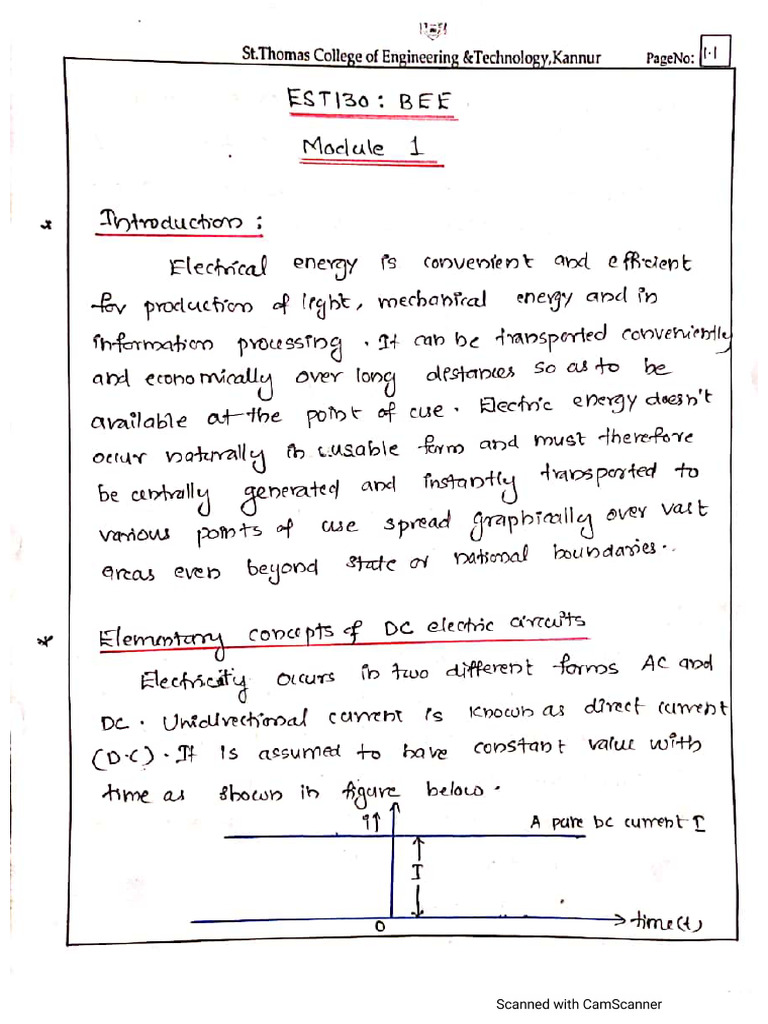 St.Thomas College of Engineering &Technology,Kannur PageNo: 1.1
EST130: BEE
Module 1
* Introduction:
Electrical energy is convenient and efficient
for production of light, mechanical energy and in
information processing. It can be transported conveniently
and economically over long distances so as to be
available at the point of use. Electric energy doesn't
occur naturally in usable form and must therefore
be centrally generated and instantly transported to
various points of use spread graphically over vast
areas even beyond state or national boundaries.
* Elementary concepts of DC electric circuits
Electricity occurs in two different forms AC and
DC. Unidirectional current is known as direct current
(D.C). It is assumed to have constant value with
time as shown in figure below.
i↑ A pure DC current I
I
0 time(t)
Scanned with CamScanner